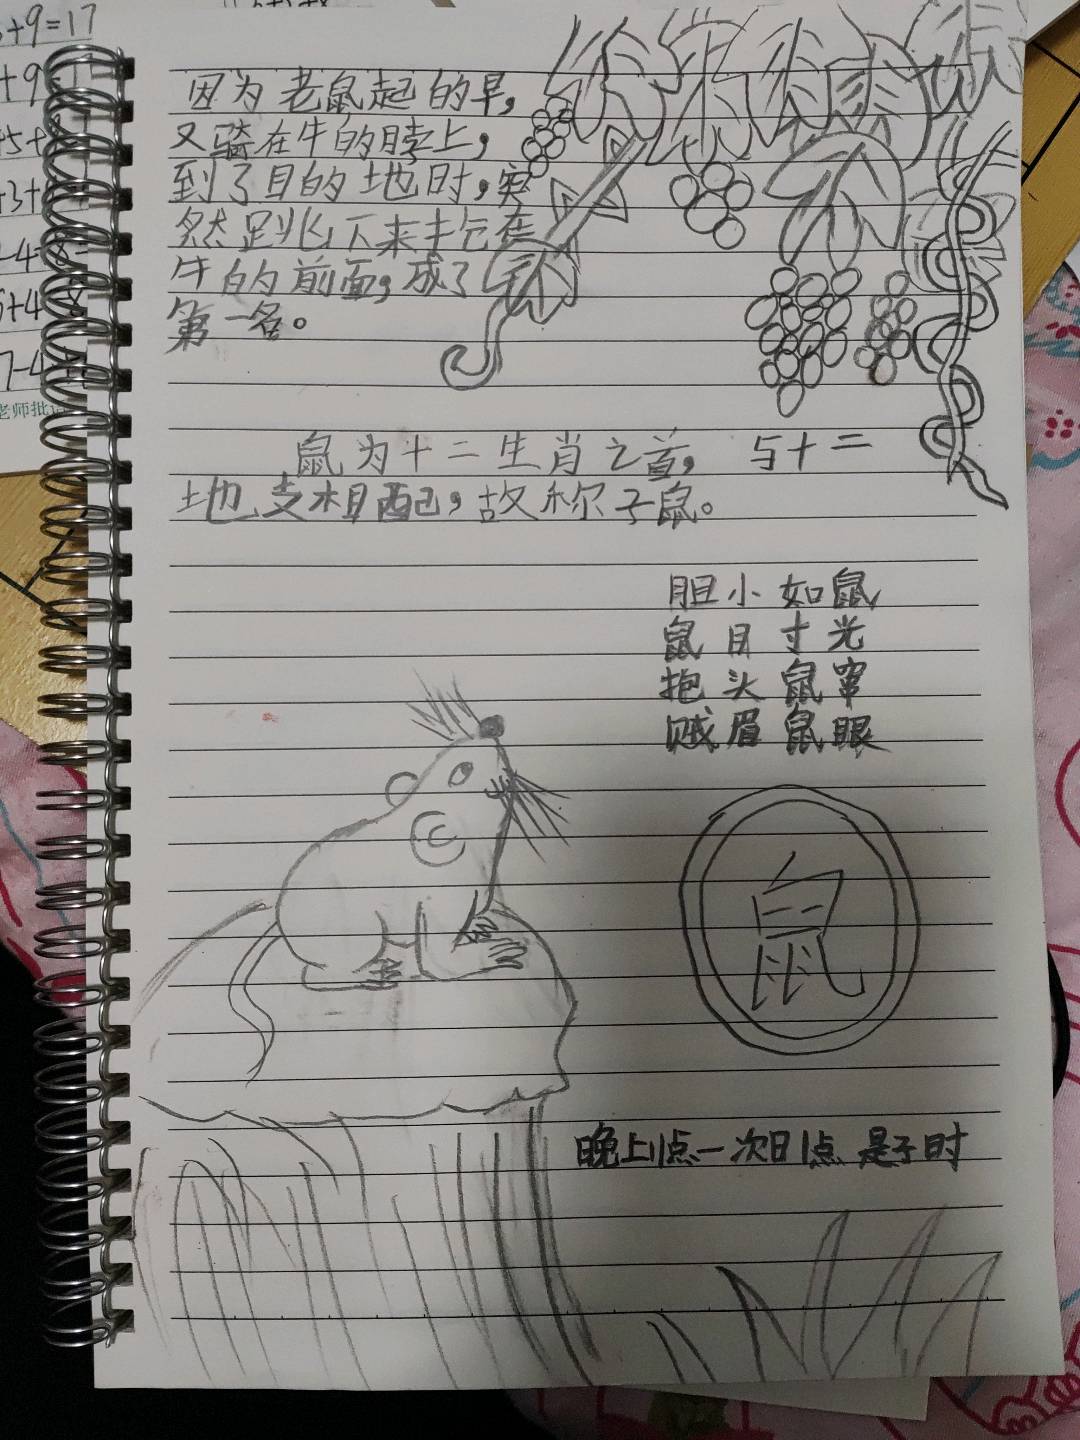 因为老鼠起的早，
又骑在牛的脖上，
到了目的地时，突
然跳下来抢在
牛的前面，成了
第一名。
鼠为十二生肖之首，与十二
地支相配，故称子鼠。
胆小如鼠
鼠目寸光
抱头鼠窜
贼眉鼠眼
鼠
晚上11点一次日1点 是子时
+9=17
+9
+5+
+3+
-4=8
+4=8
7-4
老师批